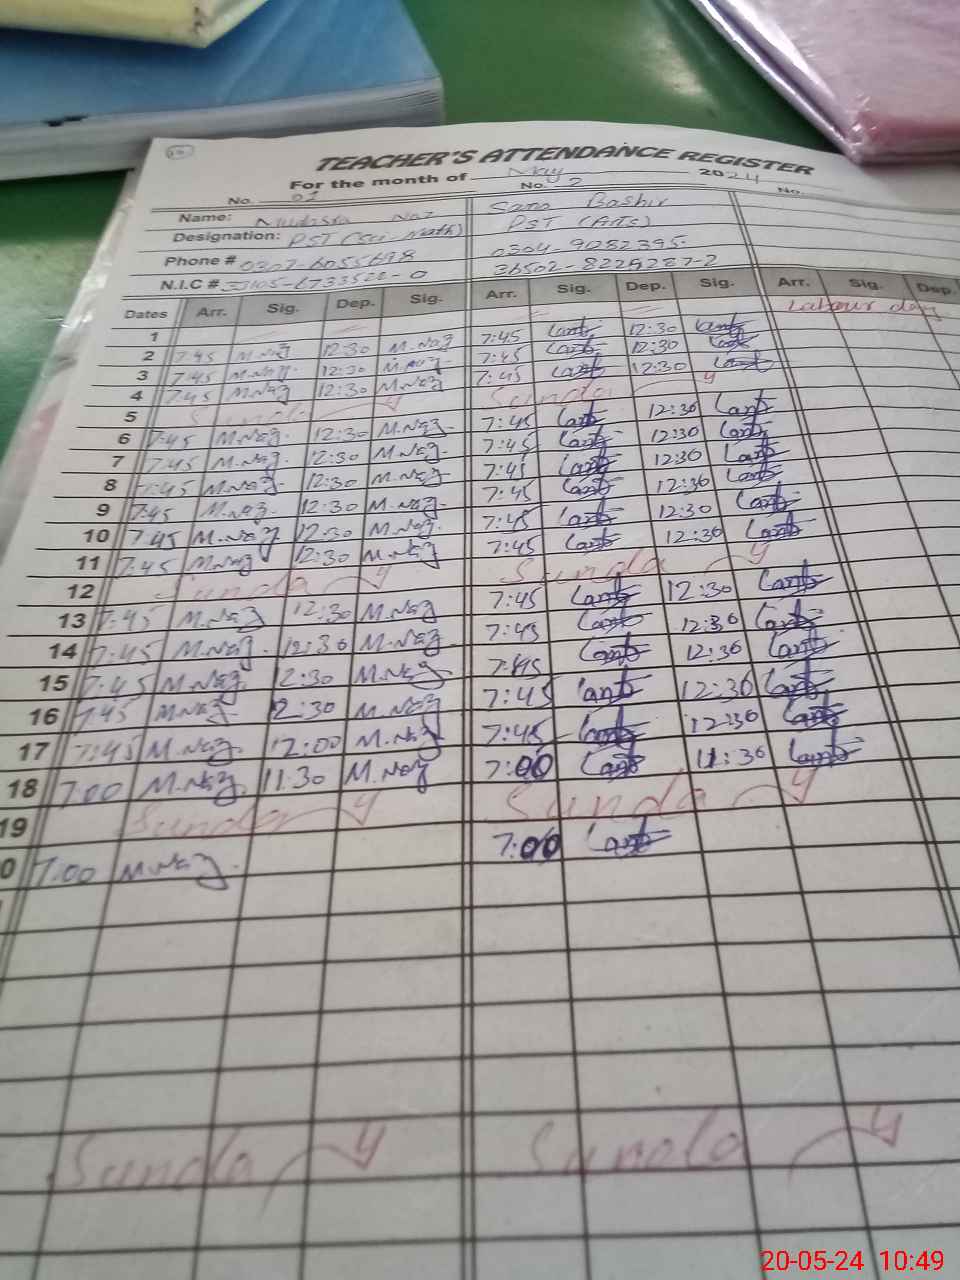 TEACHER'S ATTENDANCE REGISTER
For the month of May 2024
No. 01 No. 2 No.
Name: Naz Bashir
Designation: PST (Sci Math) PST (Arts)
Phone # 0304-9082395
N.I.C #
Dates Arr. Sig. Dep. Sig. Arr. Sig. Dep. Sig. Arr. Sig. Dep.
1 Labour day
2 7:45 M.Naz 12:30 M.Naz 7:45 12:30
3 7:45 M.Naz 12:30 M.Naz 7:45 12:30
4 7:45 M.Naz 12:30 M.Naz 7:45 12:30
5 Sunday Sunday
6 7:45 M.Naz 12:30 M.Naz 7:45 12:30
7 7:45 M.Naz 12:30 M.Naz 7:45 12:30
8 7:45 M.Naz 12:30 M.Naz 7:45 12:30
9 7:45 M.Naz 12:30 M.Naz 7:45 12:30
10 7:45 M.Naz 12:30 M.Naz 7:45 12:30
11 7:45 M.Naz 12:30 M.Naz 7:45 12:30
12 Sunday Sunday
13 7:45 M.Naz 12:30 M.Naz 7:45 12:30
14 7:45 M.Naz 12:30 M.Naz 7:45 12:30
15 7:45 M.Naz 12:30 M.Naz 7:45 12:30
16 7:45 M.Naz 12:30 M.Naz 7:45 12:30
17 7:45 M.Naz 12:00 M.Naz 7:45 12:30
18 7:00 M.Naz 11:30 M.Naz 7:00 11:30
19 Sunday Sunday
0 7:00 M.Naz 7:00
Sunday Sunday
20-05-24 10:49